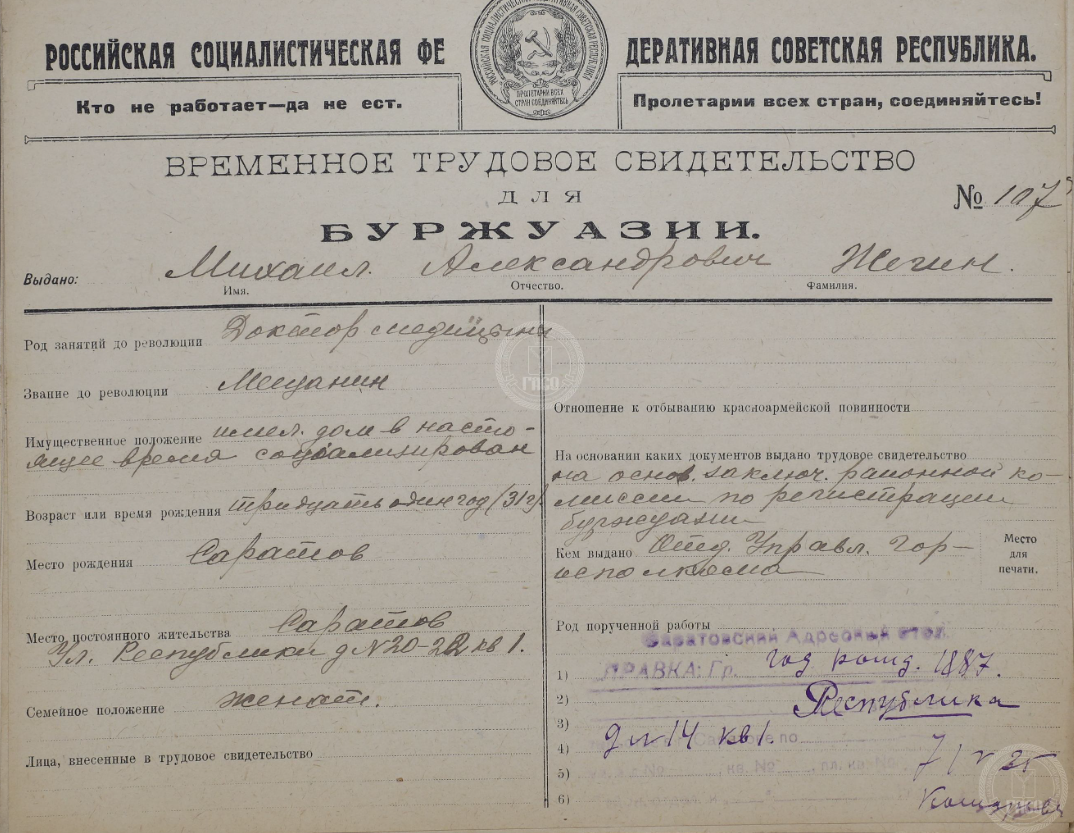 РОССИЙСКАЯ СОЦИАЛИСТИЧЕСКАЯ ФЕДЕРАТИВНАЯ СОВЕТСКАЯ РЕСПУБЛИКА.
ПРОЛЕТАРИИ ВСЕХ
СТРАН СОЕДИНЯЙТЕСЬ
Кто не работает—да не ест.
Пролетарии всех стран, соединяйтесь!
ВРЕМЕННОЕ ТРУДОВОЕ СВИДЕТЕЛЬСТВО
ДЛЯ
№ 107
БУРЖУАЗИИ.
Выдано: Михаил. Александрович Жегин.
Имя. Отчество. Фамилия.
Род занятий до революции Доктор медицины
Звание до революции Мещанин
Имущественное положение имел. дом в насто-
ящее время социализирован
Возраст или время рождения тридцать один год (31 г)
Место рождения Саратов
Место постоянного жительства Саратов
Ул. Республики д N 20-22 кв 1.
Семейное положение женат.
Лица, внесенные в трудовое свидетельство
Отношение к отбыванию красноармейской повинности
На основании каких документов выдано трудовое свидетельство
на основ. заключ. районной ко-
миссии по регистрации
буржуазии
Кем выдано Отд. Управл. Гор-
исполкома
Место
для
печати.
Род порученной работы
Саратовский Адресный стол.
СПРАВКА: Гр. год рожд. 1887.
1)
2) Республика
3)
4) д N 14 кв 1.
5)
6)
ГИСО